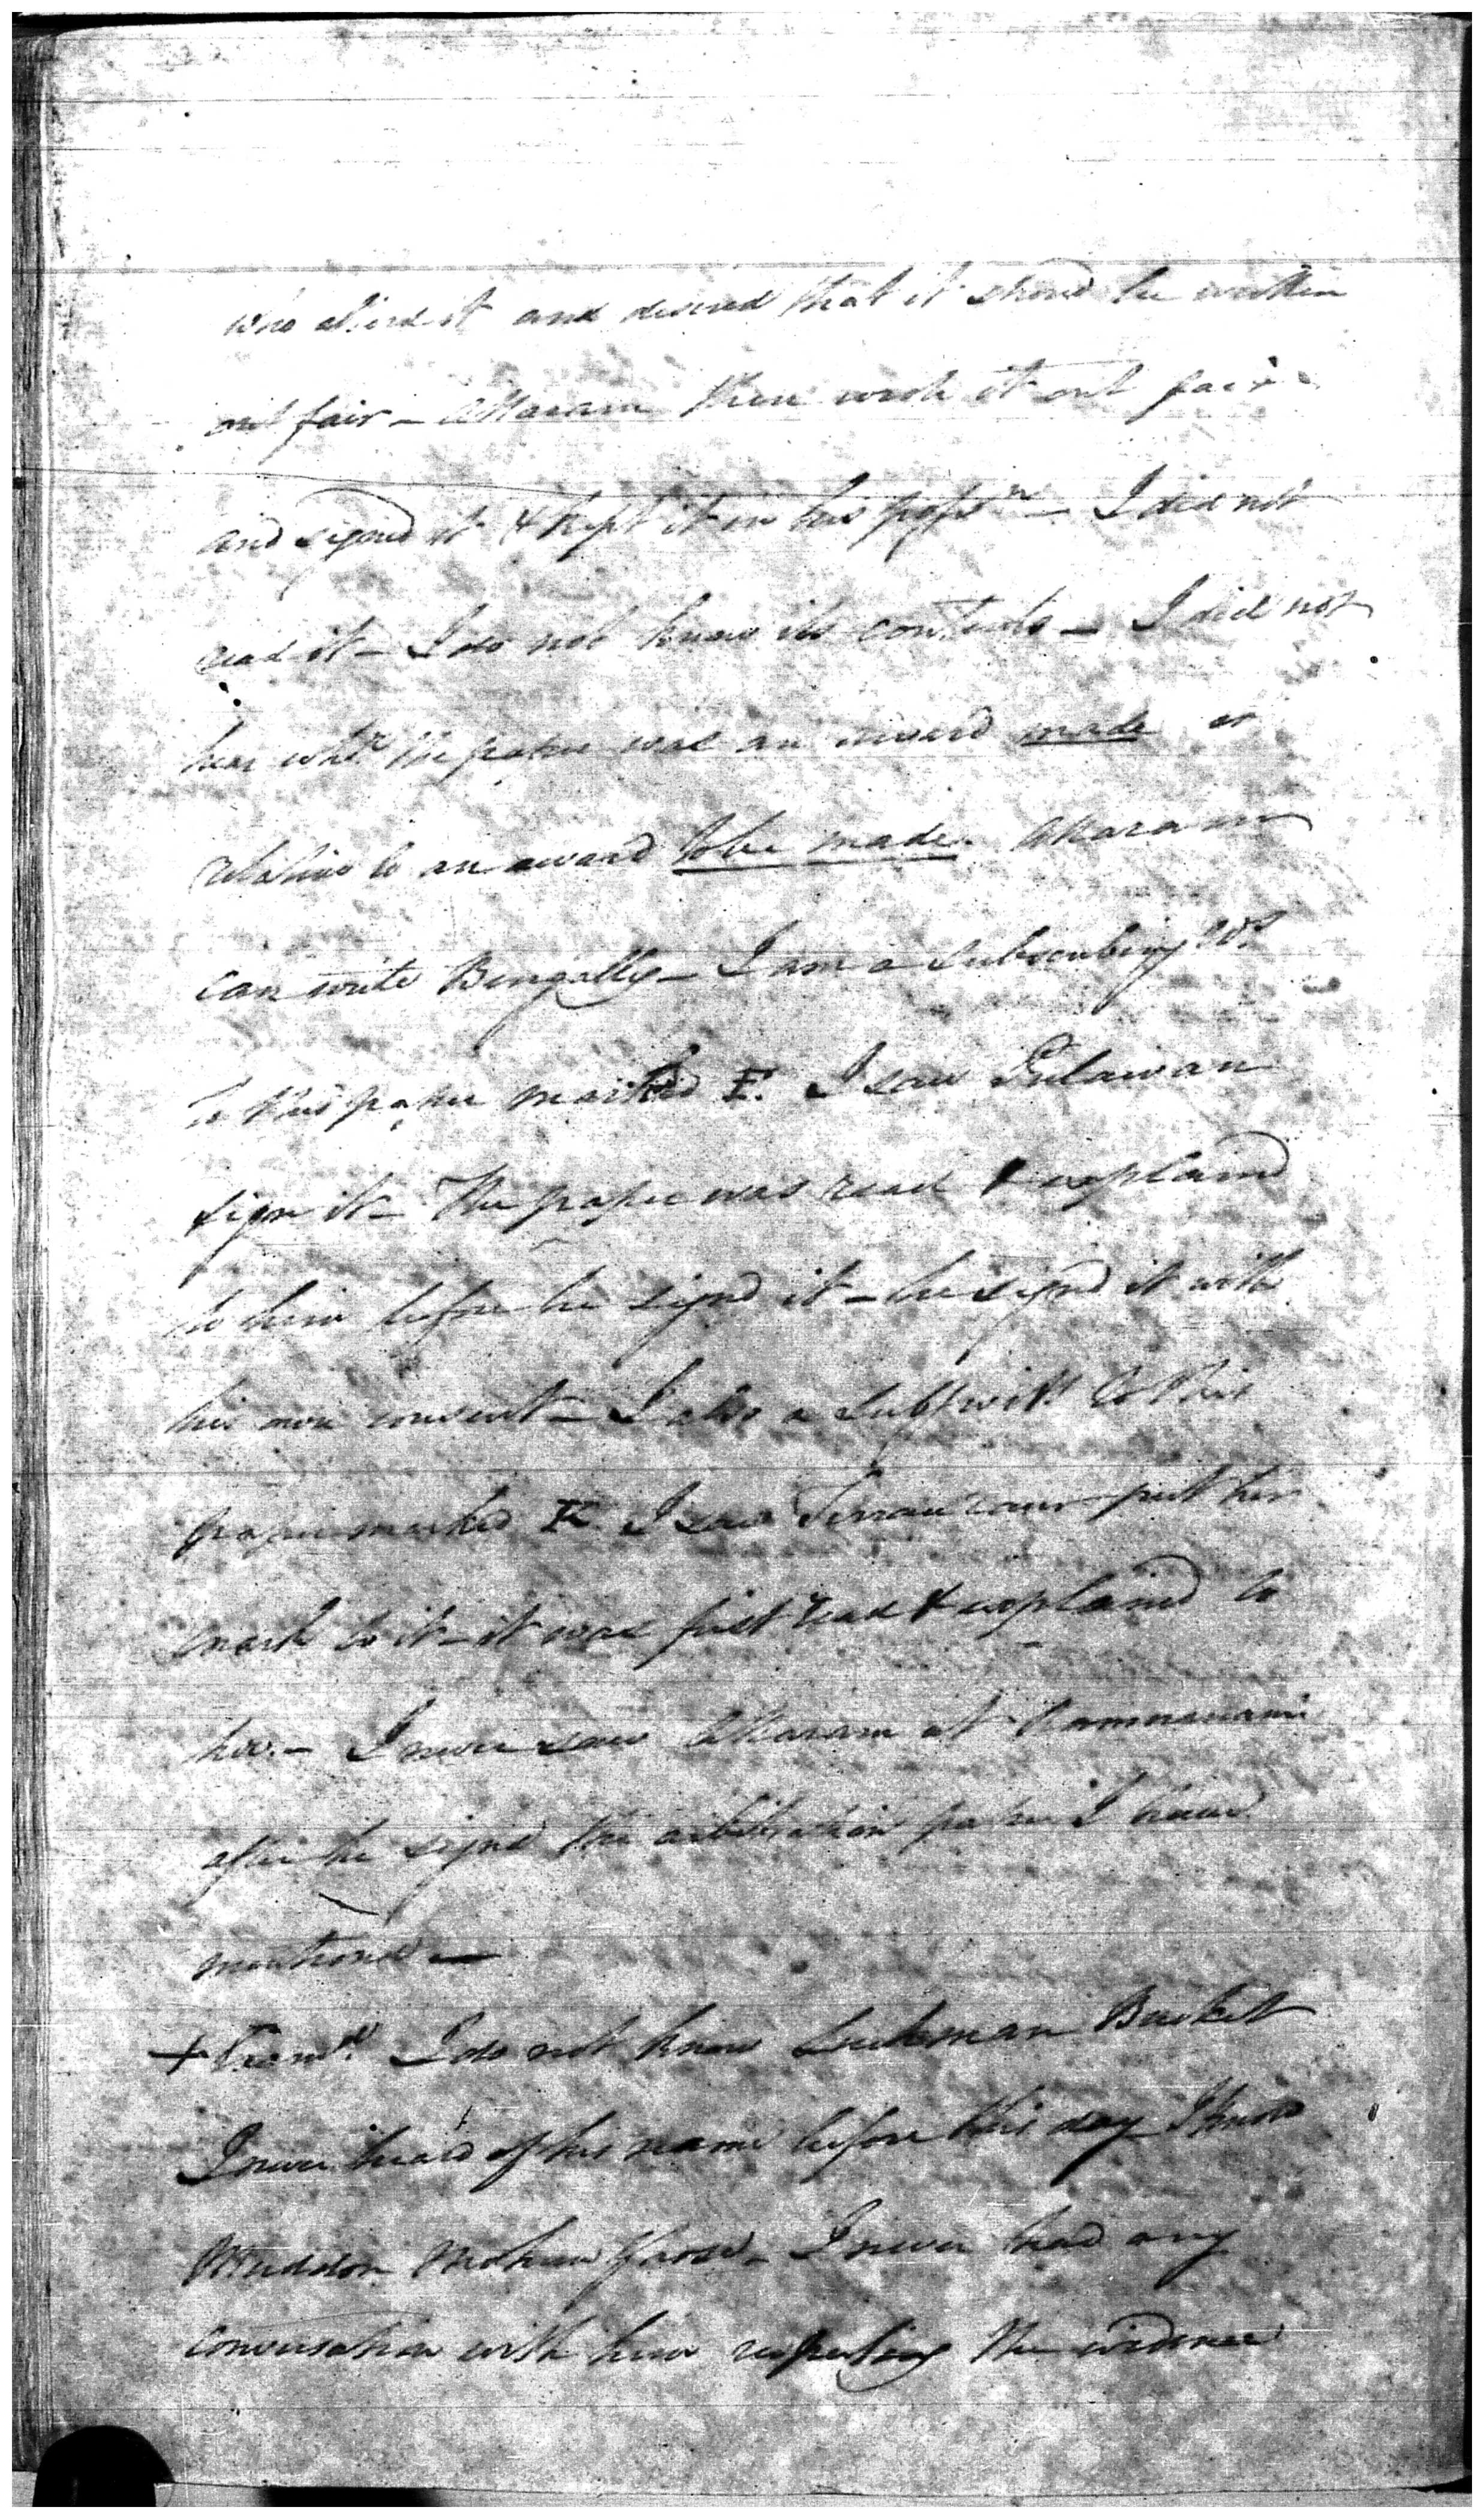 who alterd it and desired that it should be written
out fair – Attaram then wrote it out fair
and signed it & kept it in his possn – I did not
read it – I do not know its contents – I did not
hear whr the paper was an award made or
relative to an award to be made. Attaram
can write Bengally – I am a subscribing Ws
to this paper marked E. I saw
sign it – The paper was read & explaind
to him before he signd it – he signd it with
his own consent – I also a subg witt to this
paper marked I saw put her
mark to it – it was first read & explaind to
her. – I never saw Attaram at
after he signd the arbitration paper I have
mentioned –
+ Examd. I do not know Bucket
I never heard of his name before this day I know
Muddon Mohun Ghose – I never had any
conversation with him respecting the evidence